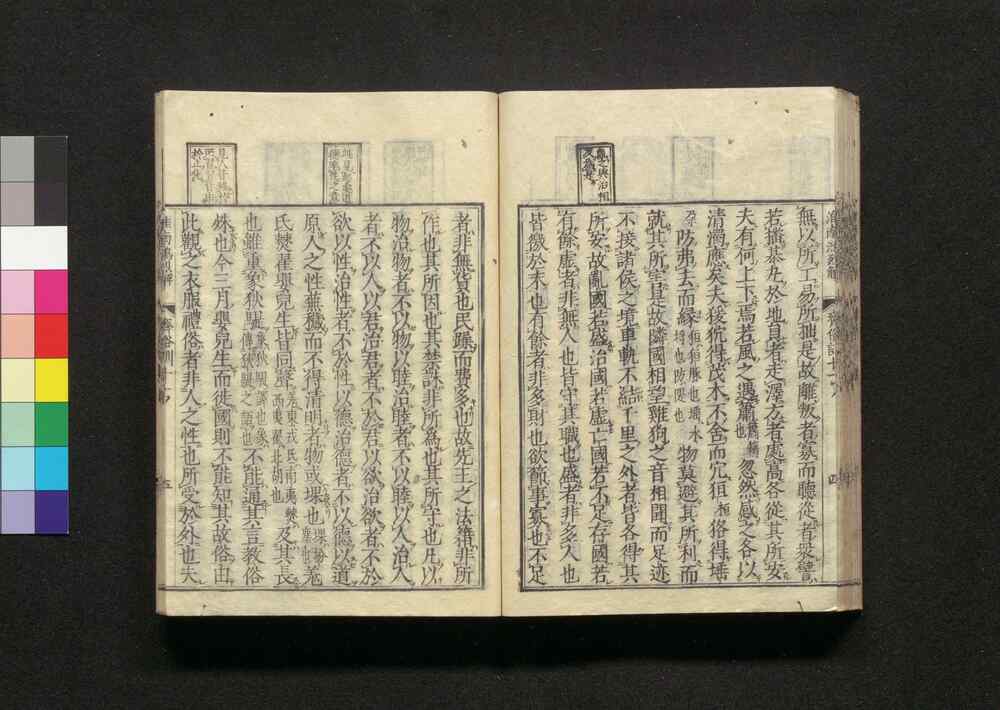 無以所工易所拙是故離叛者寡而聽從者衆譬
若播棊丸於地員者走澤方者處高各從其所安
夫有何上下焉若風之遇簫簫籟也忽然感之各以
清濁應矣夫猨狖得茂木不舍而穴狟狢得埵
防弗去而緣物莫避其所利而
就其所害是故鄰國相望雞狗之音相聞而足迹
不接諸侯之境車軌不結千里之外者皆各得其
所安故亂國若盛治國若虛亡國若不足存國若
有餘虛者非無人也皆守其職也盛者非多人也
皆徼於末也有餘者非多財也欲節事寡也不足
者非無貨也民躁而費多也故先王之法籍非所
作也其所因也其禁誅非所爲也其所守也凡以
物治物者不以物以睦治睦者不以睦以人治人
者不以人以君治君者不於君以欲治欲者不於
欲以性治性者不於性以德治德者不以德以道
原人之性蕪穢而不得清明者物或堁也羌
氐僰翟嬰兒生皆同聲及其長
也雖重象狄騠不能通其言教俗
殊也今三月嬰兒生而徙國則不能知其故俗由
此觀之衣服禮俗者非人之性也所受於外也夫
四
五